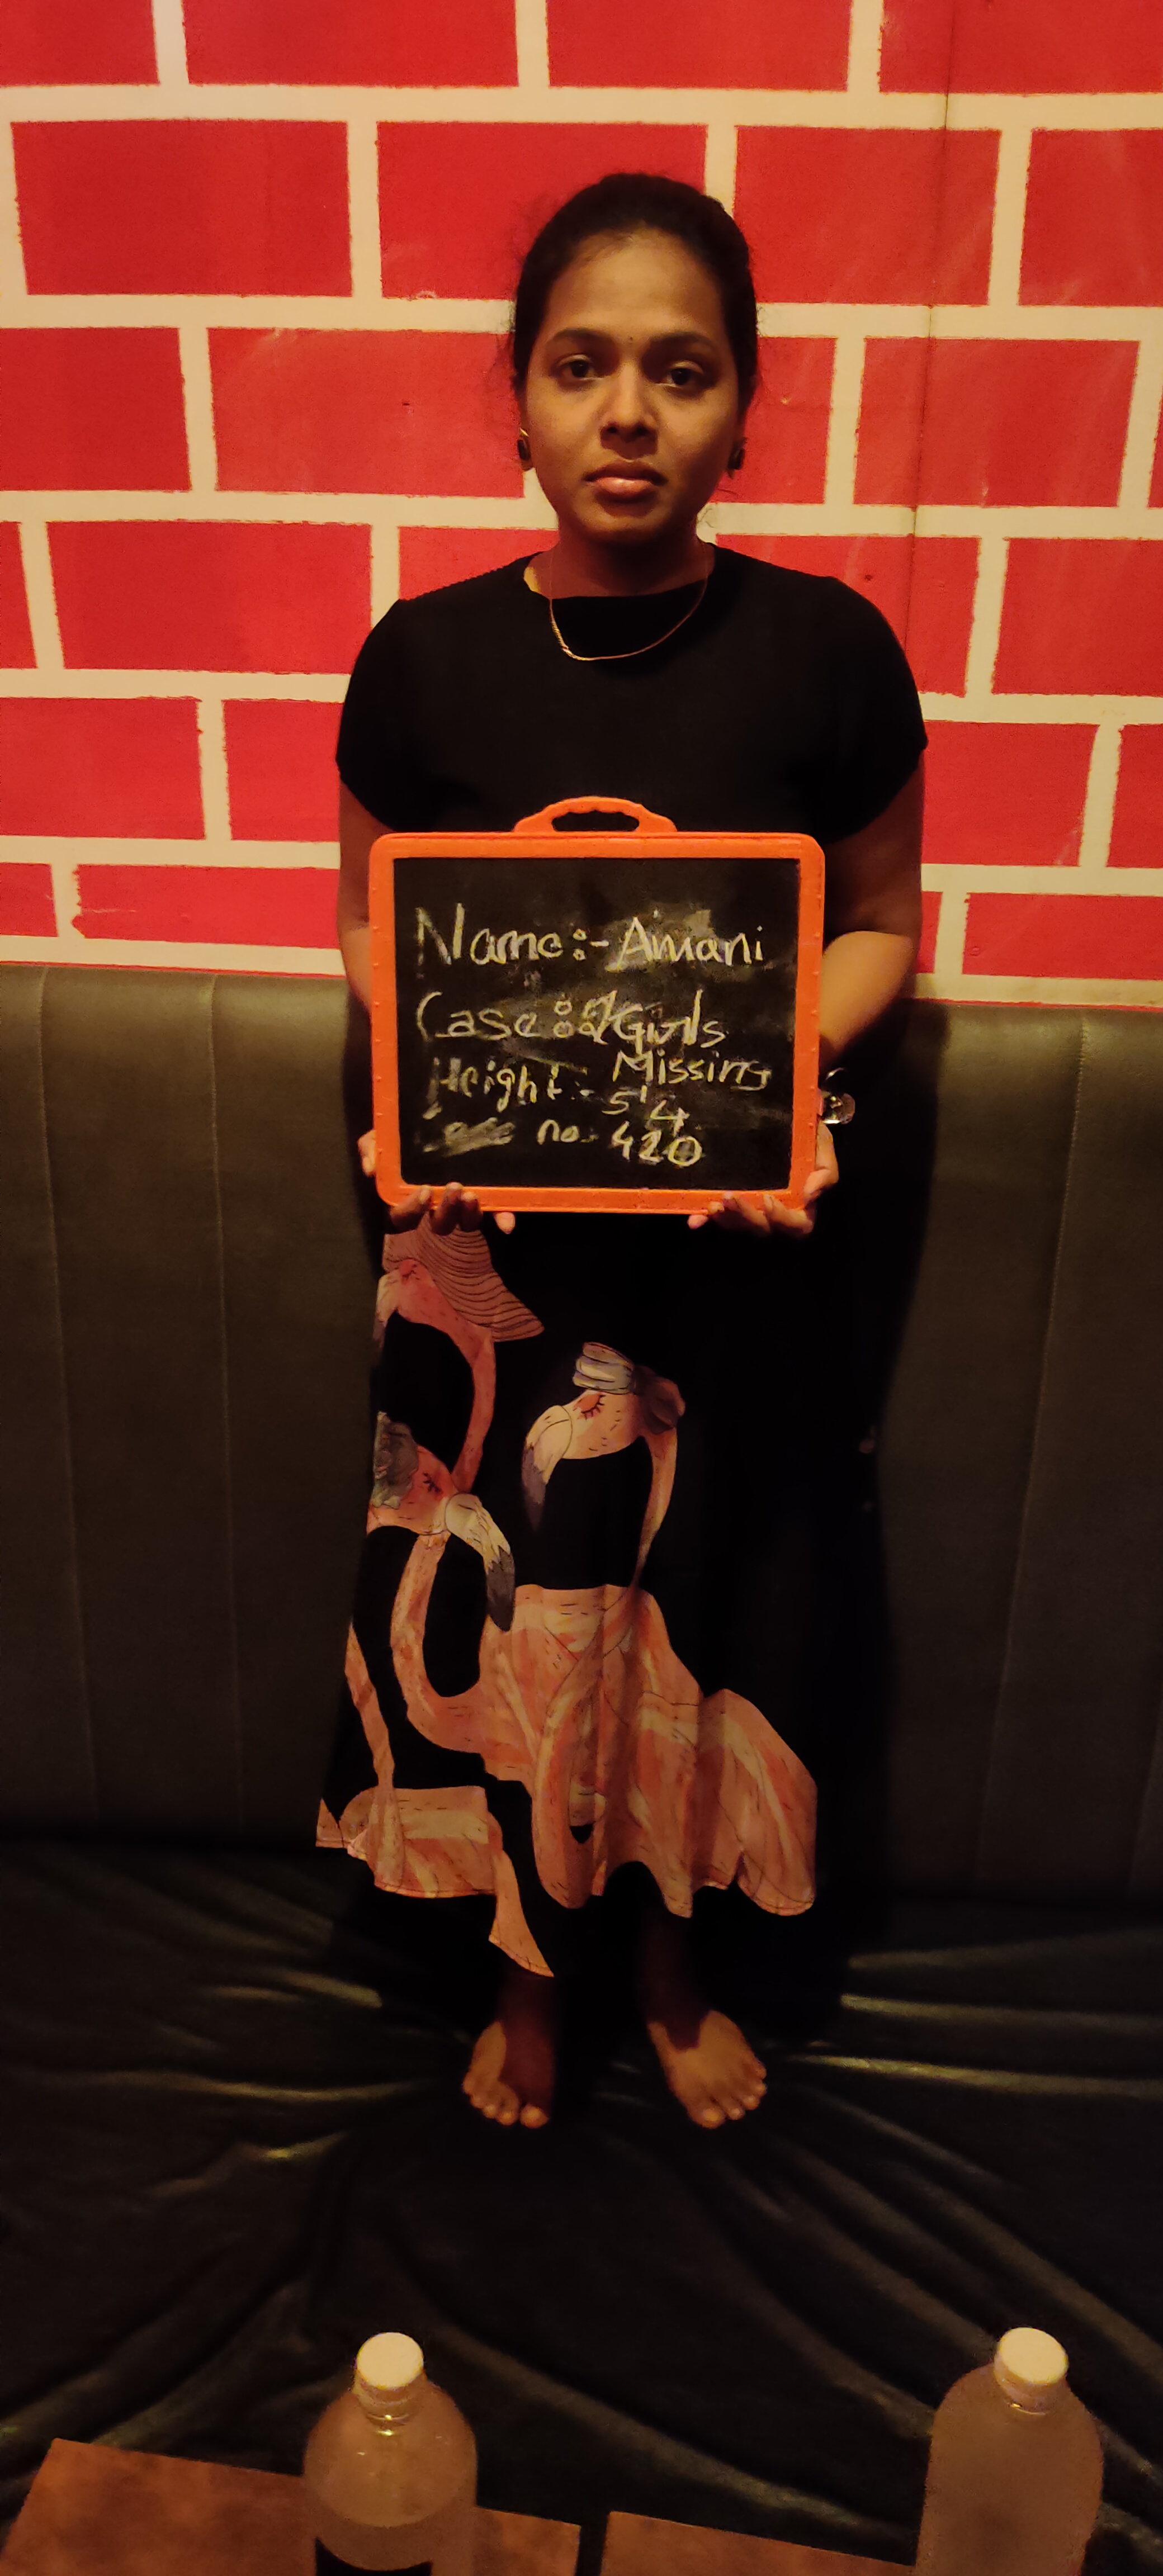 Name:- Amani
Case : 2 Girls
Missing
Height:- 5'4
no. 420